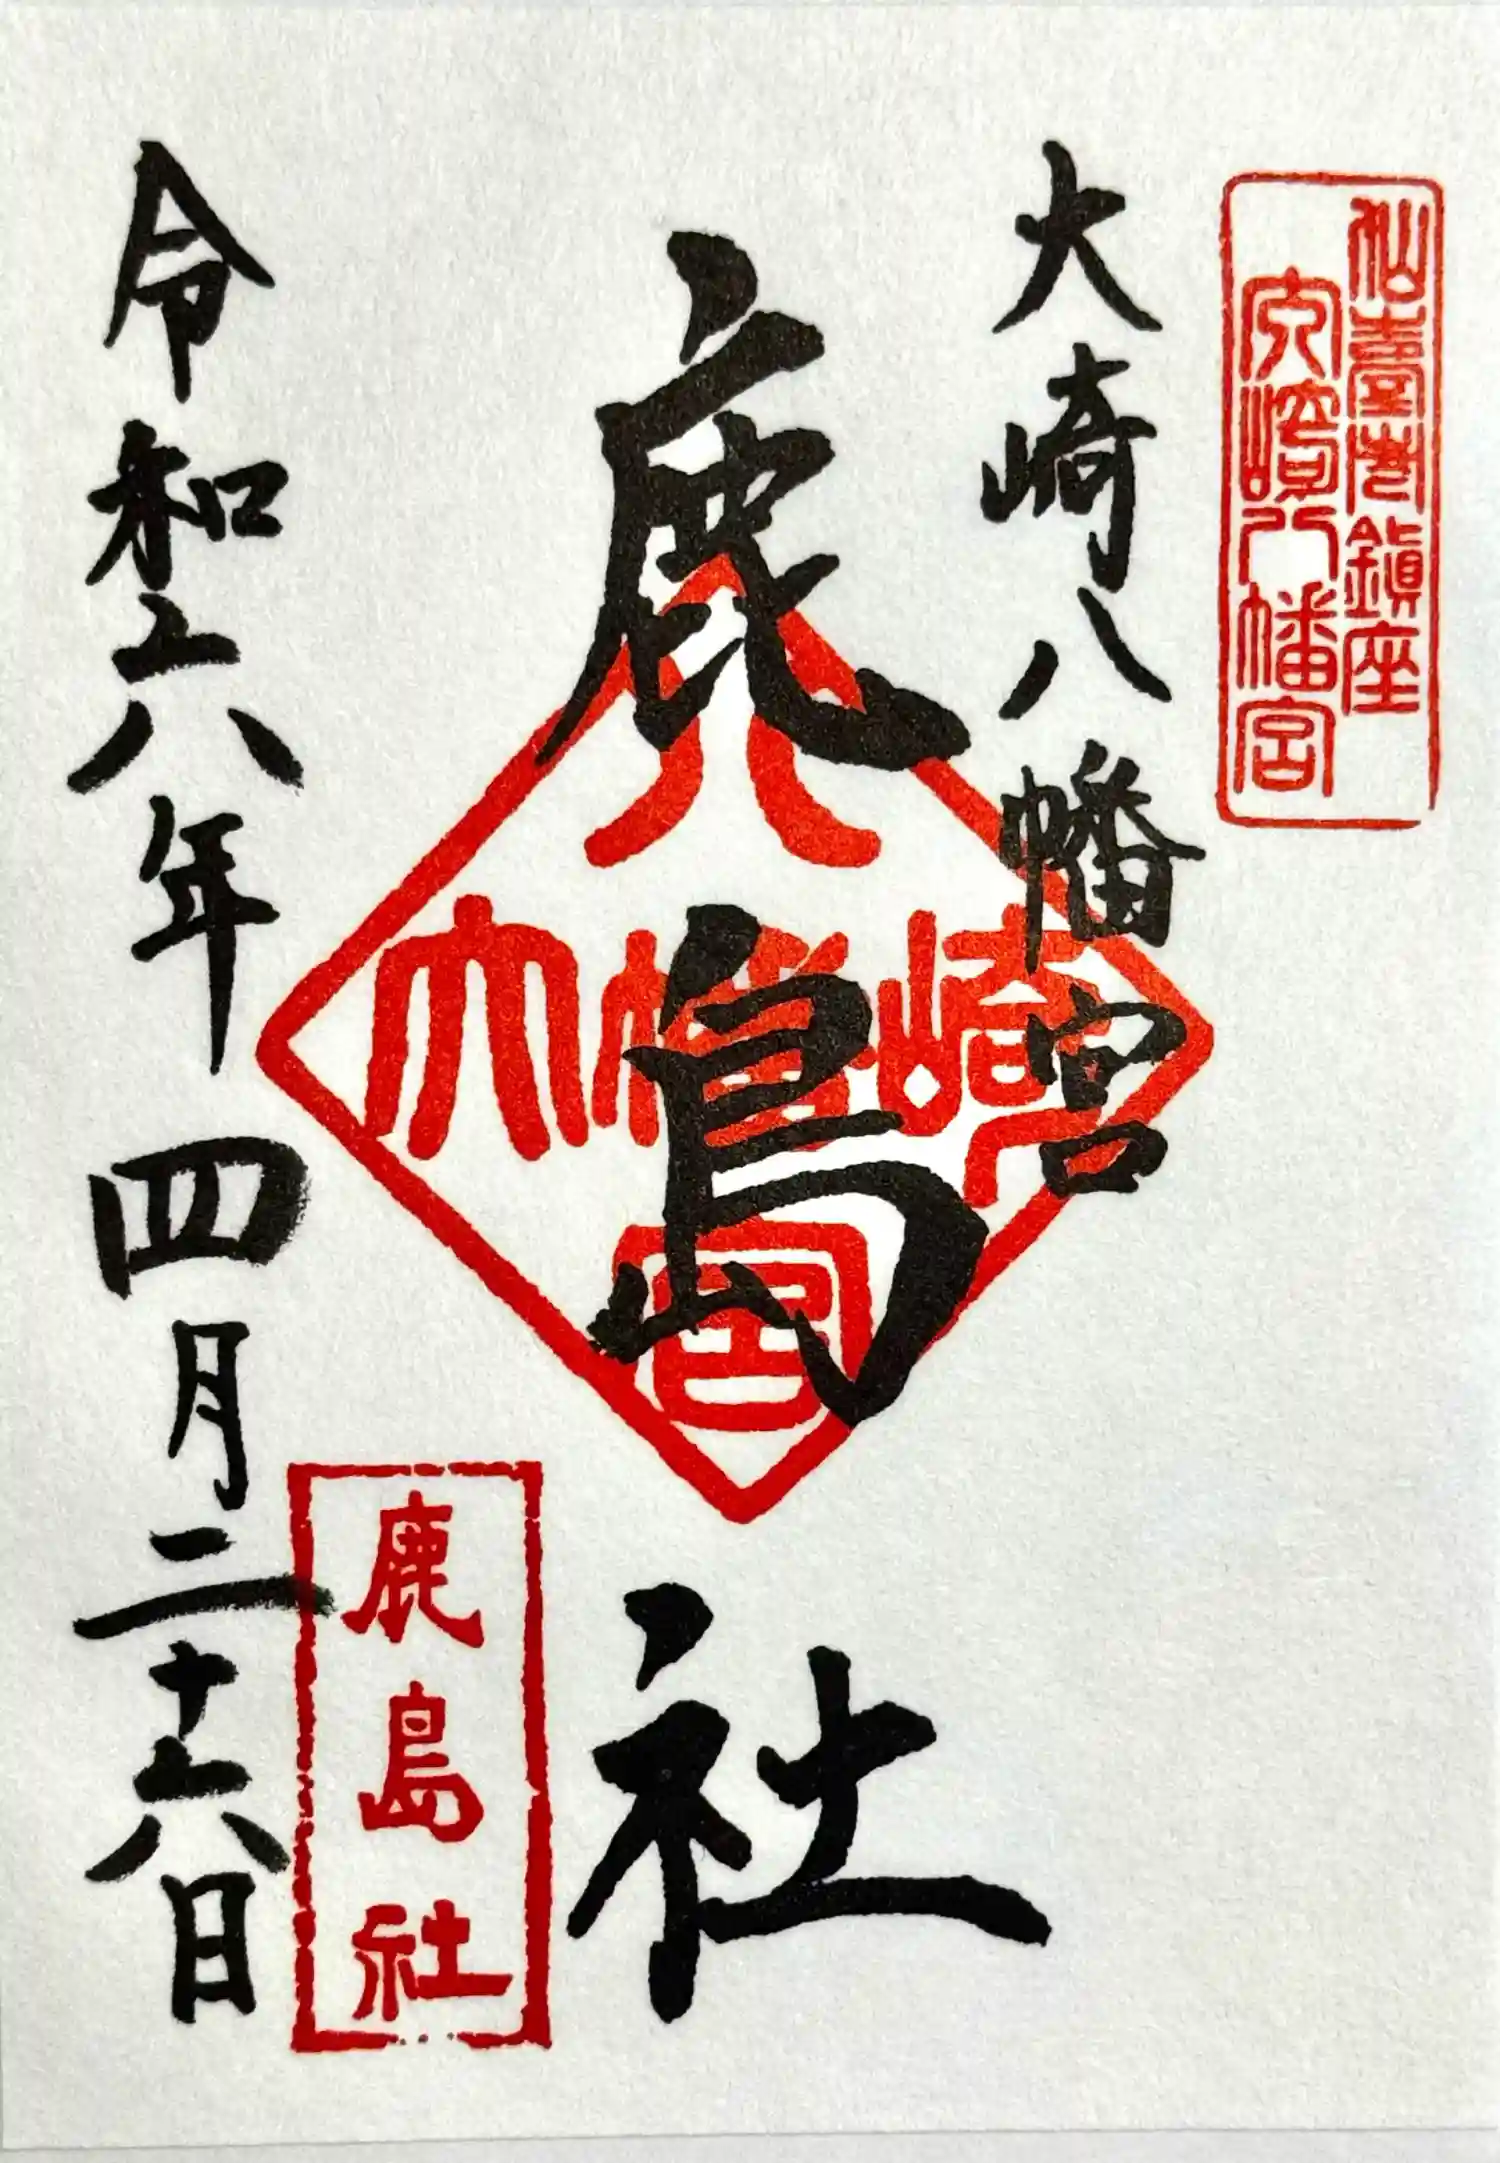 仙臺總鎮座
大崎八幡宮
大崎八幡宮
鹿島社
八幡宮大崎
鹿島社
令和六年四月二十六日